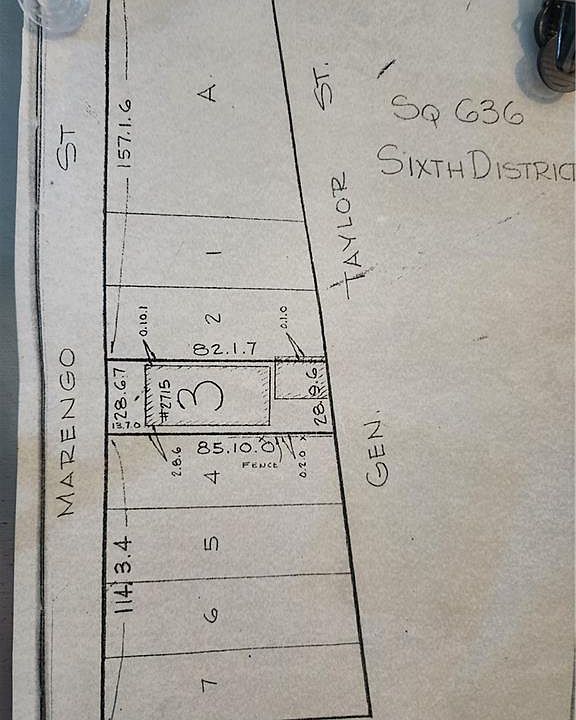 SQ 636
SIXTH DISTRICT
MARENGO ST
GEN. TAYLOR ST.
157.1.6
A.
1
2
0.10.1
0.1.0
82.1.7
28.6.7
13.7.0
#2715
3
28.9.6
85.10.0
FENCE
2.8.6
0.2.0
4
114.3.4
5
6
7